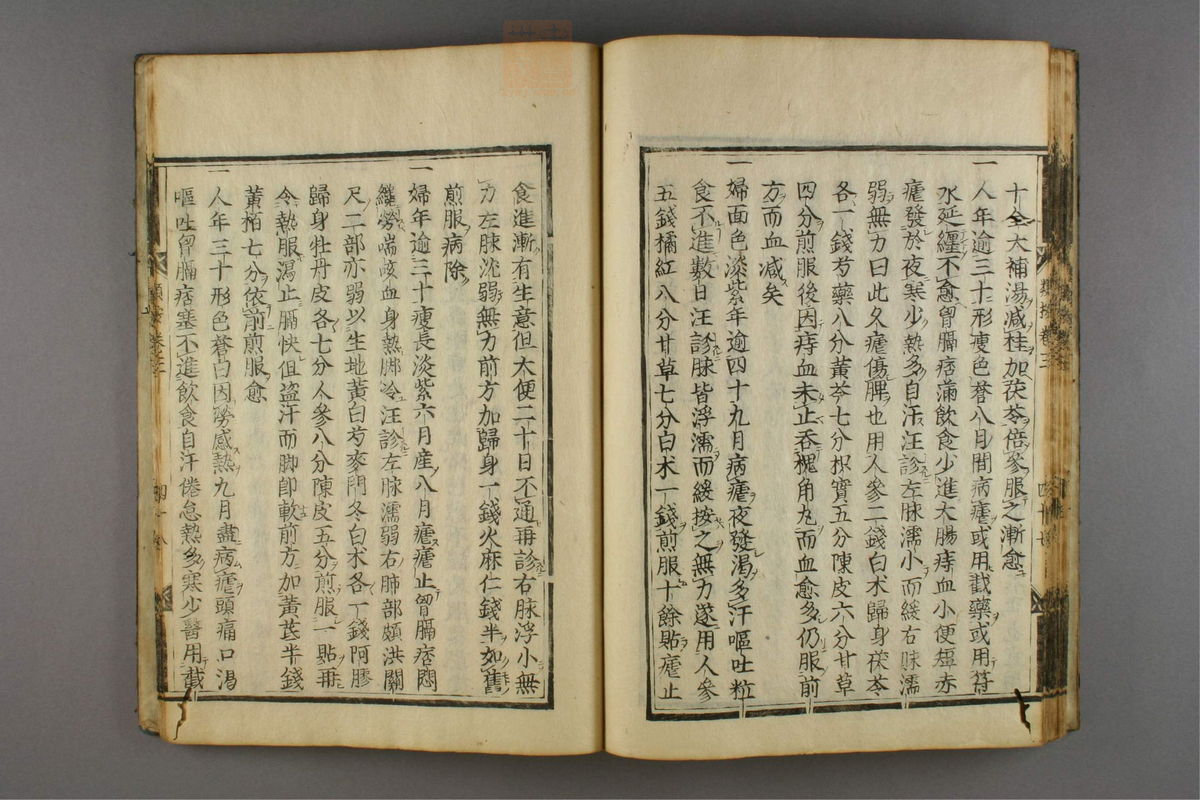 十全大補湯減桂加茯苓倍參服之漸愈
一人年逾三十形瘦色蒼八月間病瘧或用截藥或用符
水延纏不愈胷膈痞滿飲食少進大腸痔血小便短赤
瘧發於夜寒少熱多自汗汪診左脉濡小而緩右脉濡
弱無力曰此久瘧傷脾也用人參二錢白术歸身茯苓
各一錢芍藥八分黄芩七分枳實五分陳皮六分甘草
四分煎服後因痔血未止吞槐角丸而血愈多仍服前
方而血減矣
一婦面色淡紫年逾四十九月病瘧夜發渴多汗嘔吐粒
食不進數日汪診脉皆浮濡而緩按之無力遂用人參
五錢橘紅八分甘草七分白术一錢煎服十餘貼瘧止
食進漸有生意但大便二十日不通再診右脉浮小無
力左脉沈弱無力前方加歸身一錢火麻仁錢半如舊
煎服病除
一婦年逾三十瘦長淡紫六月產八月瘧瘧止胷膈痞悶
纔勞喘咳血身熱脚冷汪診左脉濡弱右肺部頗洪關
尺二部亦弱以生地黄白芍麥門冬白术各一錢阿膠
歸身牡丹皮各七分人參八分陳皮五分煎服一貼再
令熱服瀉止膈快但盗汗而脚卽軟前方加黄芪半錢
黄栢七分依前煎服愈
一人年三十形色蒼白因勞感熱九月盡病瘧頭痛口渴
嘔吐胷膈痞塞不進飲食自汗倦怠熱多寒少醫用截